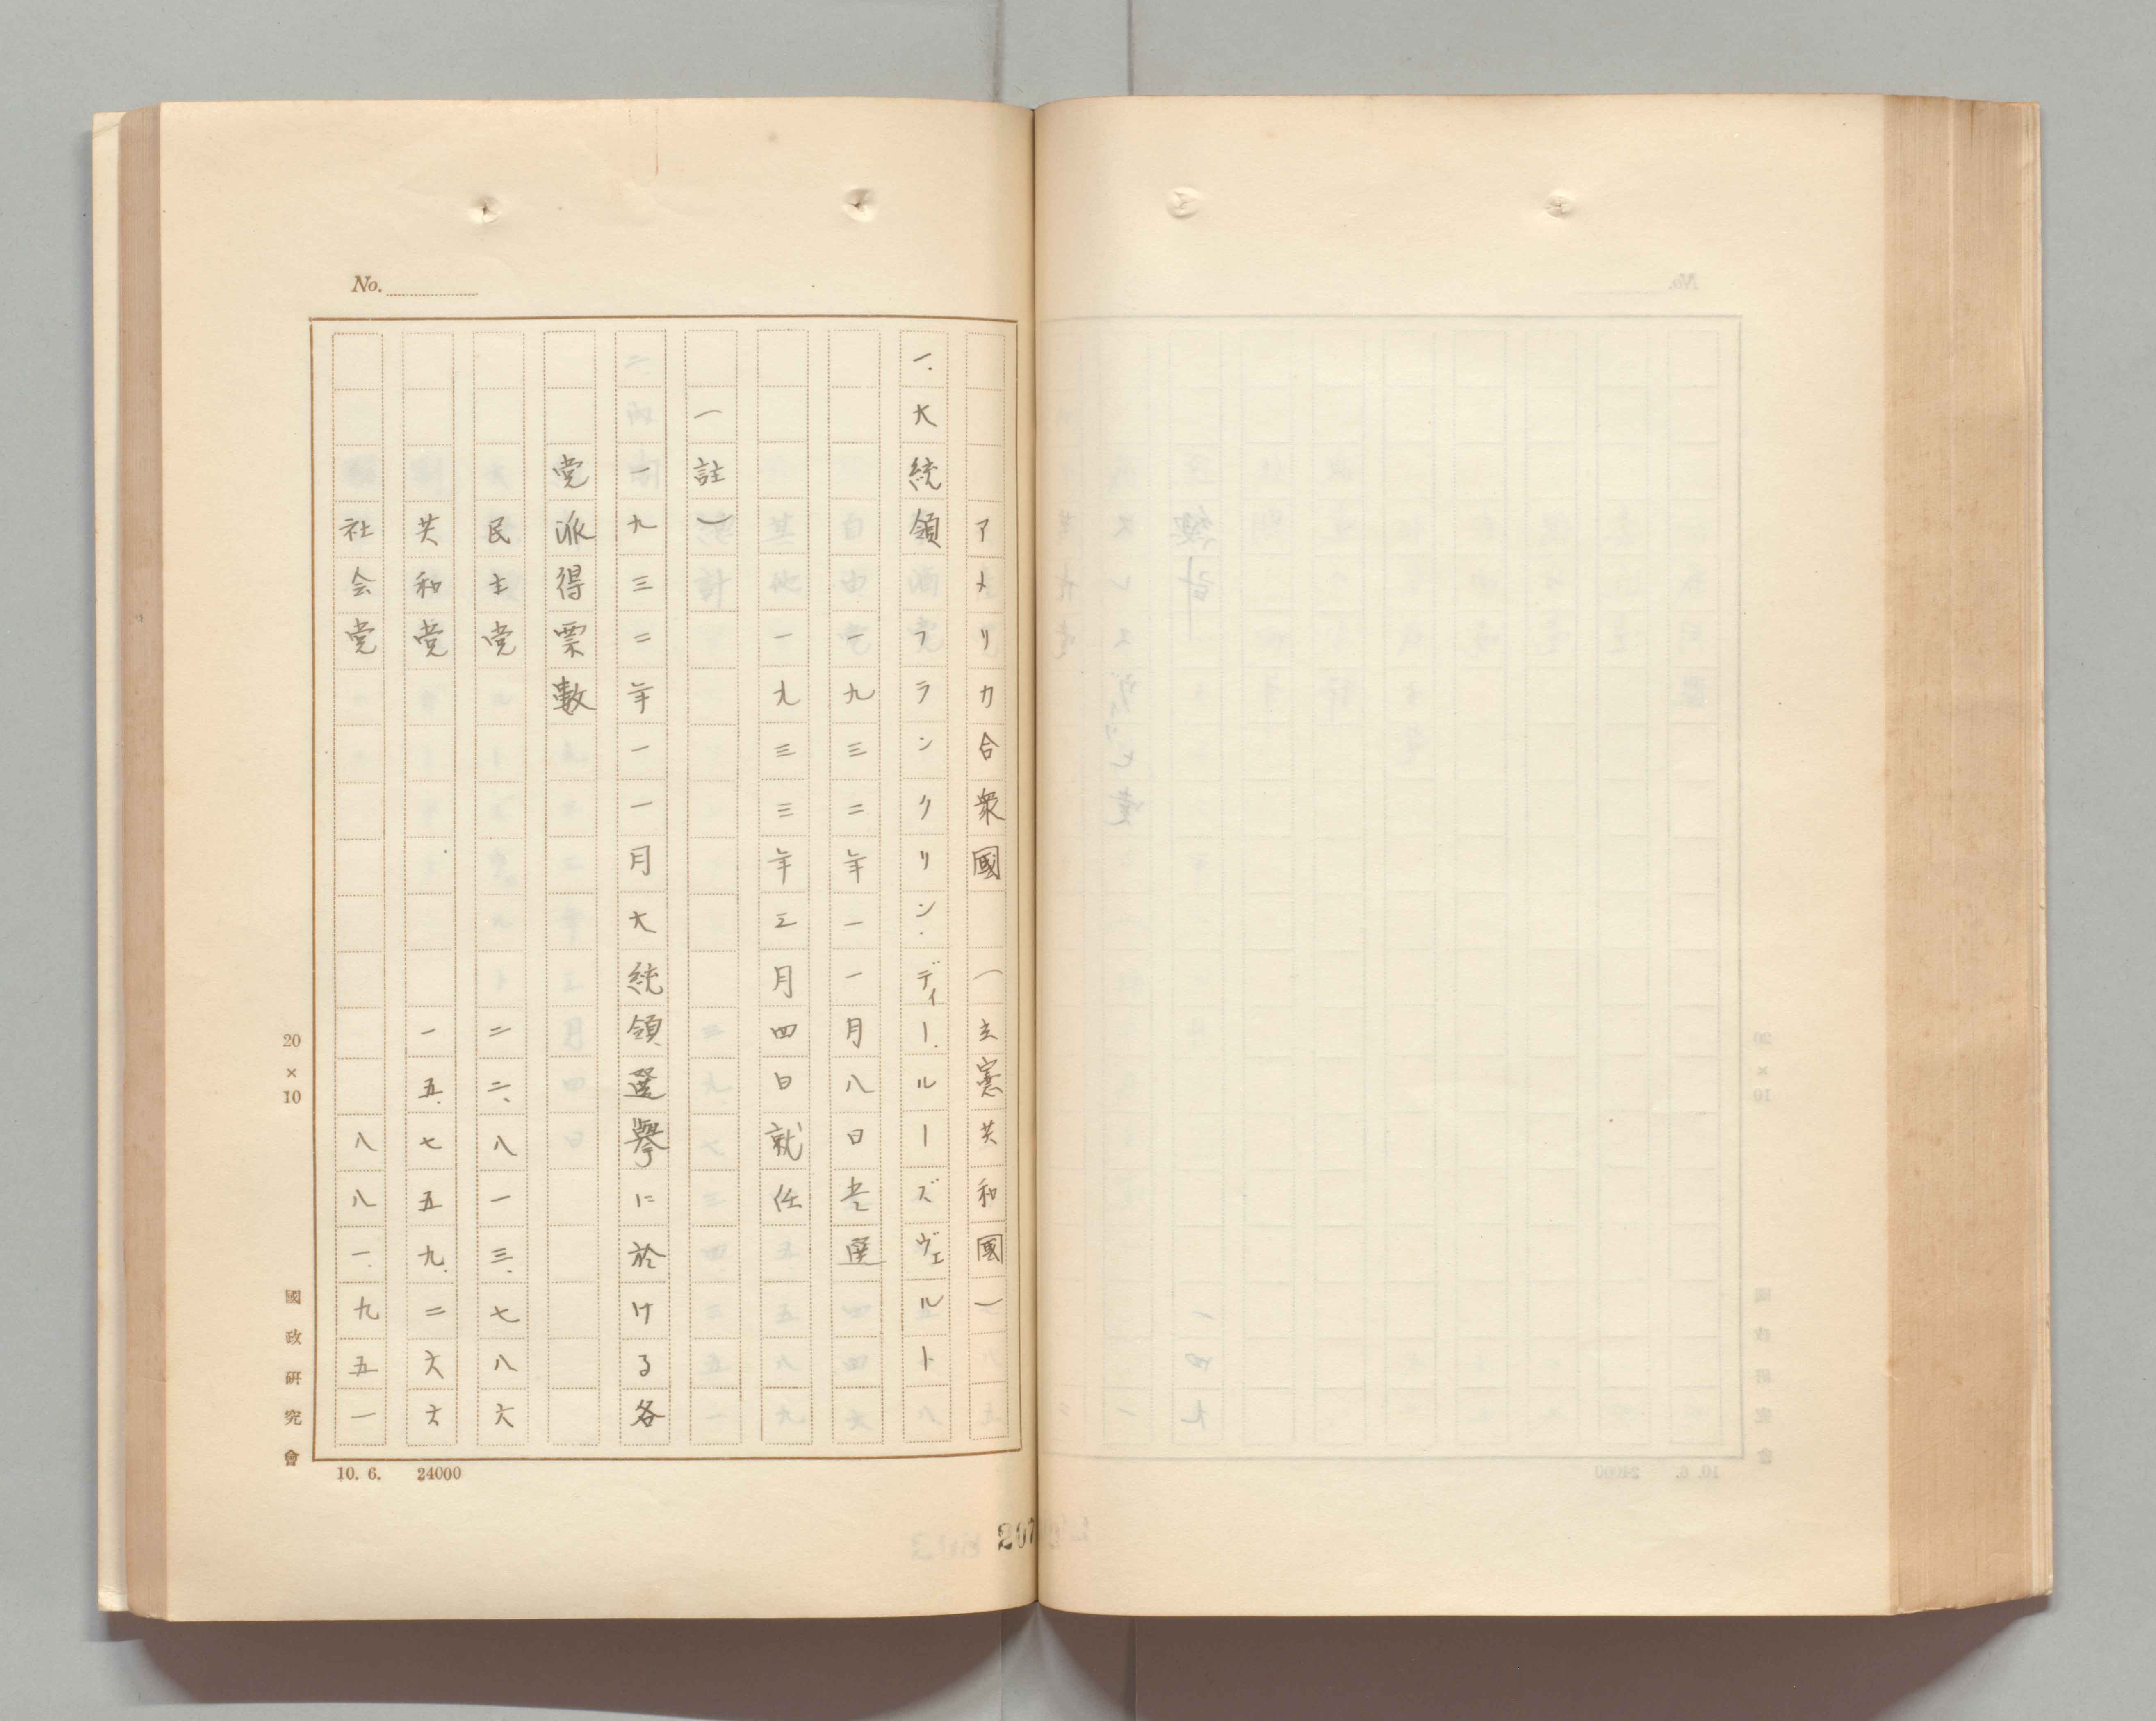 No.
アメリカ合衆國　(立憲共和國)
一.大統領　フランクリン.ディー.ルーズヴェルト
一九三二年一一月八日当選
一九三三年三月四日就任
(註)
一九三二年一一月大統領選擧に於ける各
党派得票數
民主党　二二、八一三.七八六
共和党　一五.七五九.二六六
社会党　八八一.九五一
20×10
國政研究會
10. 6. 24000
207